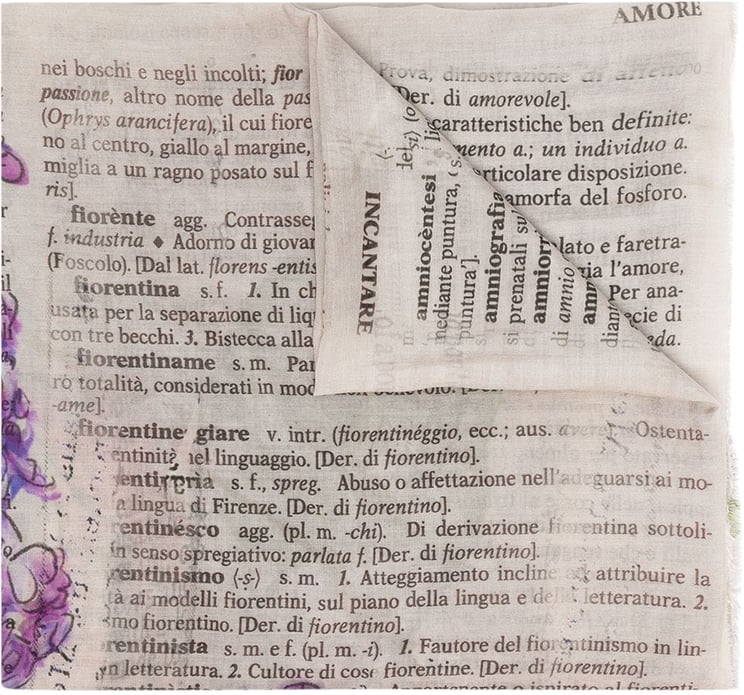 AMORE
nei boschi e negli incolti; fior
passione, altro nome della pas
(Ophrys arancifera), il cui fiore
no al centro, giallo al margine,
miglia a un ragno posato sul f
ris].
fiorènte agg. Contrasseg
f. industria ◆ Adorno di giovan
(Foscolo). [Dal lat. florens -entis
fiorentina s.f. 1. In ch
usata per la separazione di liq
con tre becchi. 3. Bistecca alla
fiorentiname s.m. Par
ro totalità, considerati in mod
-ame].
fiorentine giare v. intr. (fiorentinéggio, ecc.; aus. avere). Ostenta-
entinità nel linguaggio. [Der. di fiorentino].
s.f., spreg. Abuso o affettazione nell'adeguarsi ai mo-
a lingua di Firenze. [Der. di fiorentino].
rentinésco agg. (pl. m. -chi). Di derivazione fiorentina sottoli-
in senso spregiativo: parlata f. [Der. di fiorentino].
rentinismo ⟨-ṣ-⟩ s.m. 1. Atteggiamento incline ad attribuire la
tà ai modelli fiorentini, sul piano della lingua e della letteratura. 2.
smo fiorentino. [Der. di fiorentino].
rentinista s.m. e f. (pl. m. -i). 1. Fautore del fiorentinismo in lin-
in letteratura. 2. Cultore di cose fiorentine. [Der. di fiorentino].
Prova, dimostrazione di affetto
Der. di amorevole].
caratteristiche ben definite:
mento a.; un individuo a.
articolare disposizione.
amorfa del fosforo.
lato e faretra-
gia l'amore,
Per ana-
ecie di
eda.
INCANTARE
amniocèntesi
mediante puntura,
puntura'].
amniografia
prenatali su
amnior
di amnio
amn